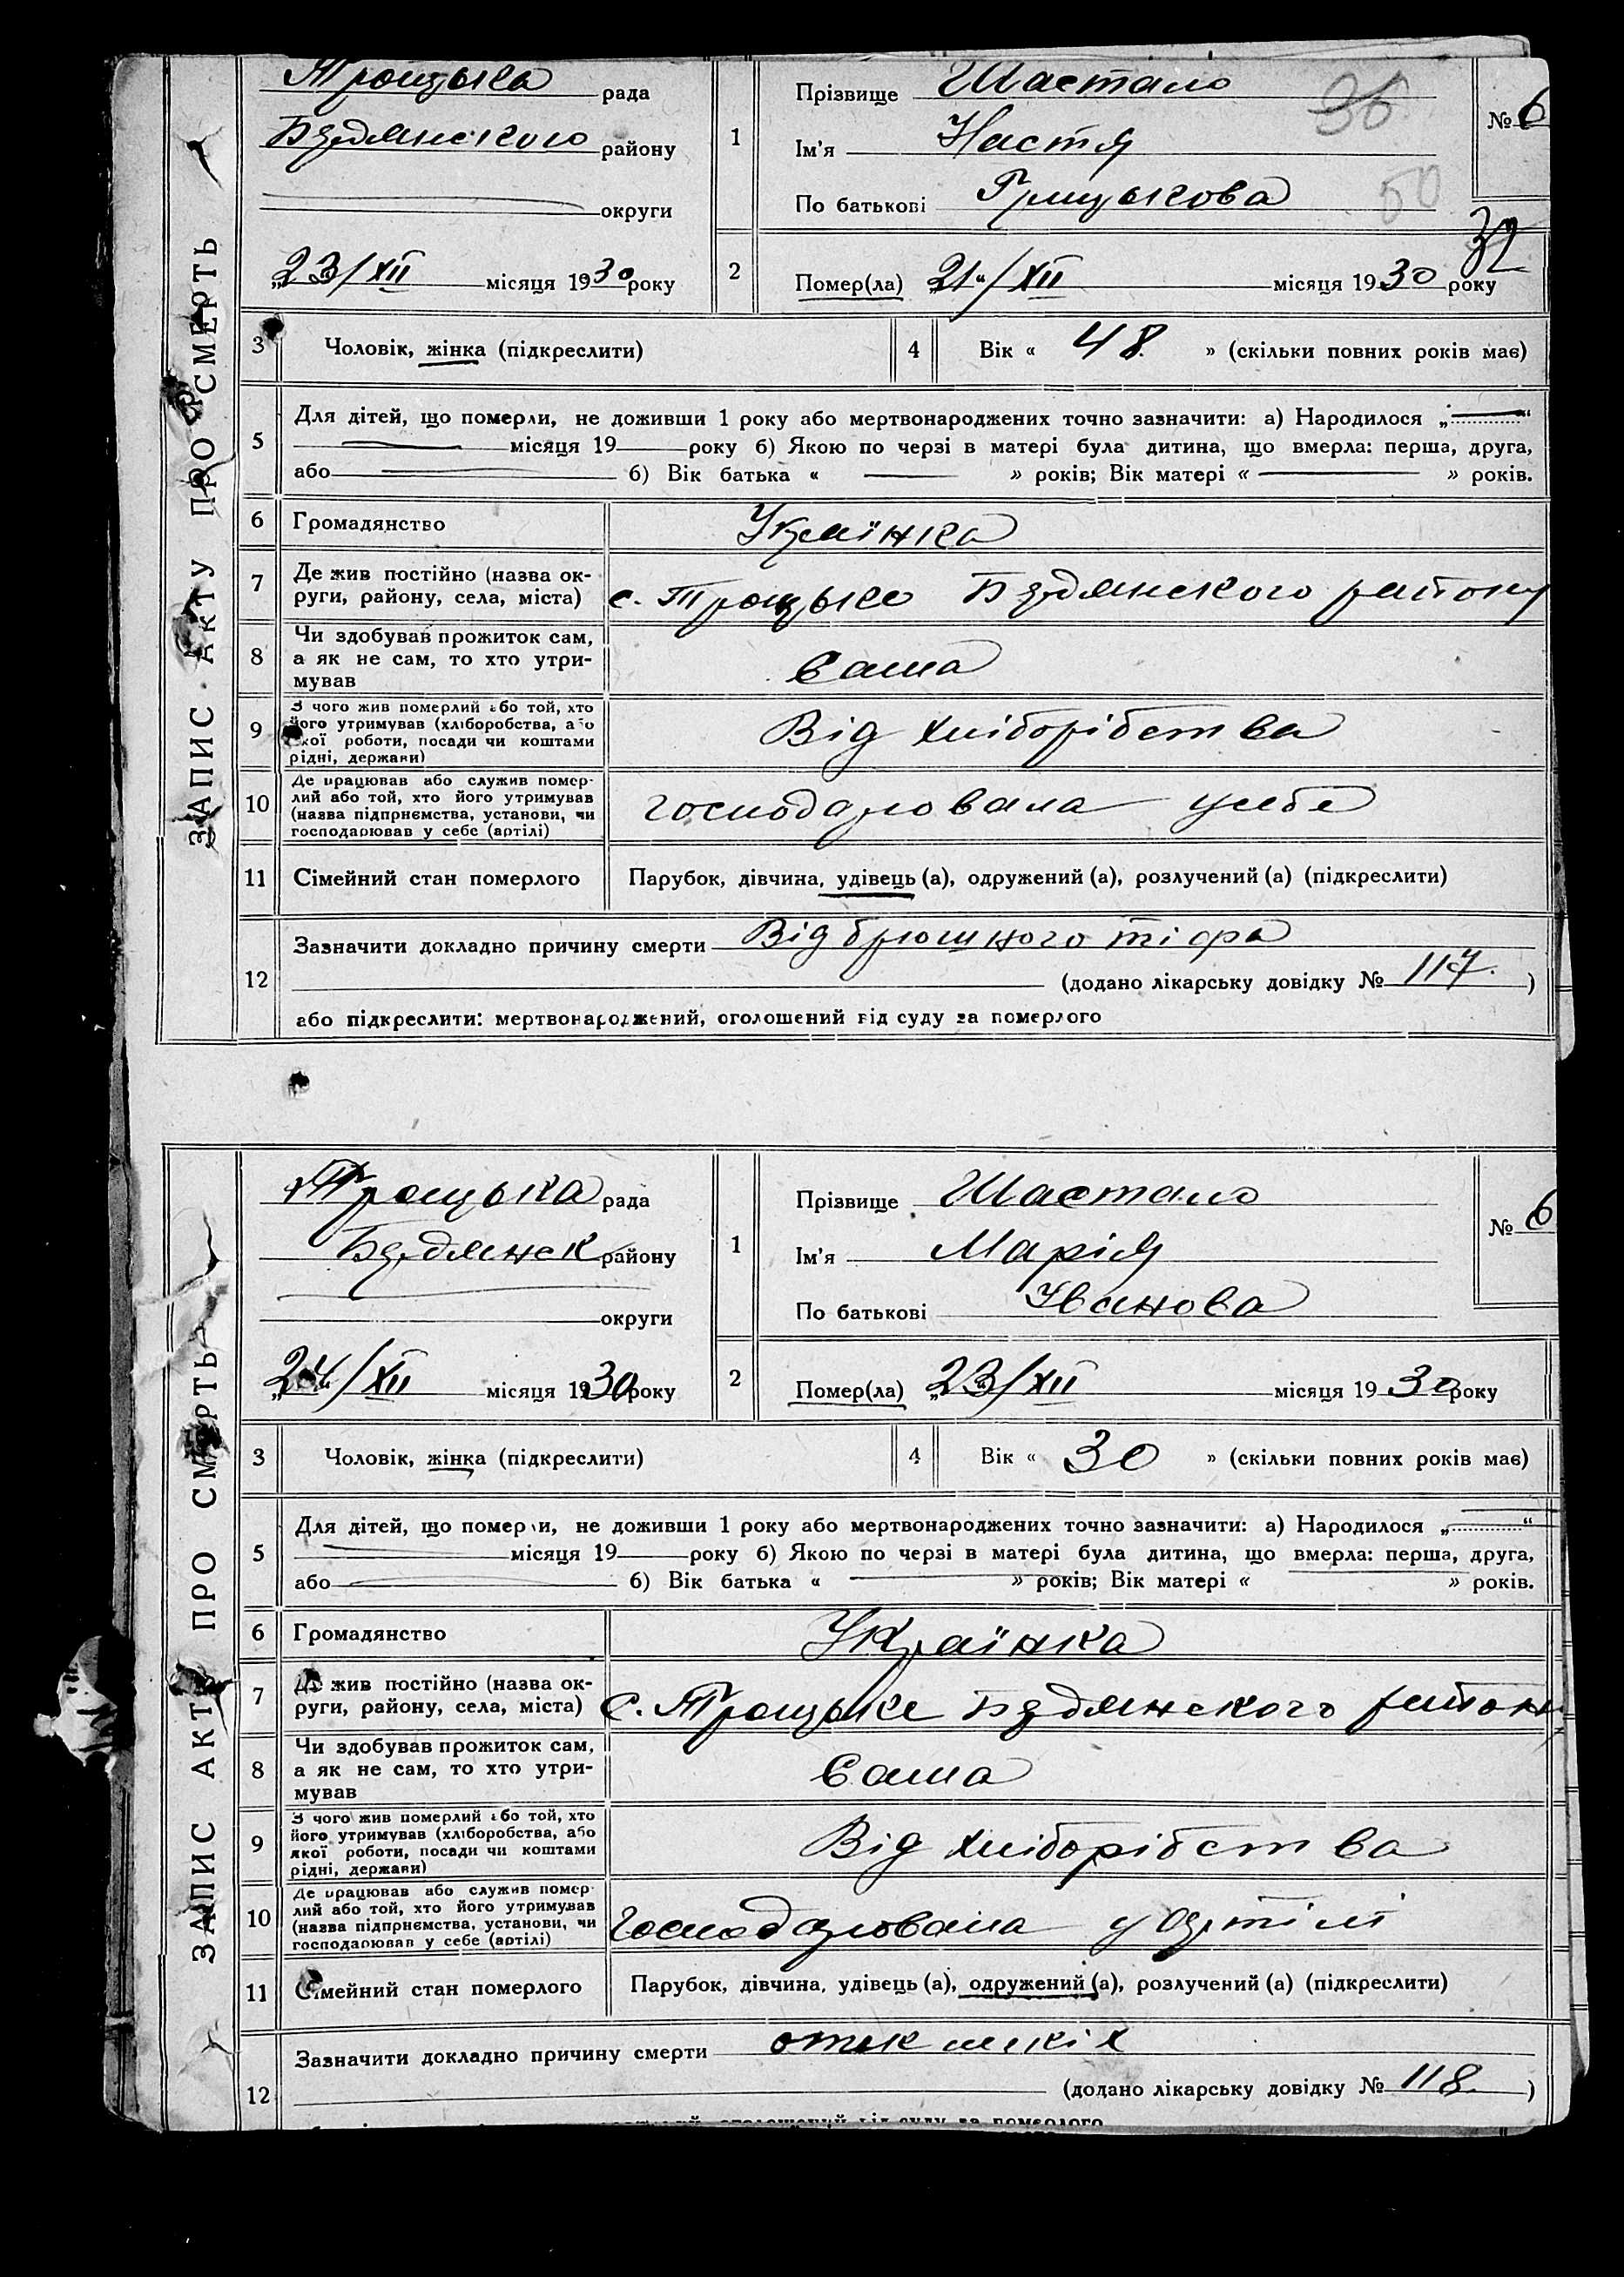 ЗАПИС АКТУ ПРО СМЕРТЬ
Троцька рада
Бердянского району
округи
„23/XII місяця 1930 року
1
Прізвище Шастало
Ім'я Настя
По батькові Грицькова
36
50
32
№ 6
2
Помер(ла) „21“/XII місяця 1930 року
3 Чоловік, жінка (підкреслити)
4 Вік « 48 » (скільки повних років має)
5
Для дітей, що померли, не доживши 1 року або мертвонароджених точно зазначити: а) Народилося „
місяця 19 року б) Якою по черзі в матері була дитина, що вмерла: перша, друга,
або б) Вік батька « » років; Вік матері « » років.
6 Громадянство Українка
7 Де жив постійно (назва ок-
руги, району, села, міста) с. Троцьке Бердянского району
8 Чи здобував прожиток сам,
а як не сам, то хто утри-
мував Сама
9 З чого жив померлий або той, хто
його утримував (хліборобства, або
якої роботи, посади чи коштами
рідні, держави) Від хліборібства
10 Де працював або служив помер-
лий або той, хто його утримував
(назва підприємства, установи, чи
господарював у себе (артілі) господаровала усебе
11 Сімейний стан померлого Парубок, дівчина, удівець (а), одружений (а), розлучений (а) (підкреслити)
12
Зазначити докладно причину смерти Від брюшного тіфа
(додано лікарську довідку № 117. )
або підкреслити: мертвонароджений, оголошений від суду за померлого
ЗАПИС АКТУ ПРО СМЕРТЬ
Троцька рада
Бердянск району
округи
„24“/XII місяця 1930 року
1
Прізвище Шастало
Ім'я Марія
По батькові Іванова
№ 6
2
Помер(ла) „23/XII місяця 1930 року
3 Чоловік, жінка (підкреслити)
4 Вік « 30 » (скільки повних років має)
5
Для дітей, що померли, не доживши 1 року або мертвонароджених точно зазначити: а) Народилося „ “
місяця 19 року б) Якою по черзі в матері була дитина, що вмерла: перша, друга,
або б) Вік батька « » років; Вік матері « » років.
6 Громадянство Українка
7 Де жив постійно (назва ок-
руги, району, села, міста) С. Троцьке Бердянского району
8 Чи здобував прожиток сам,
а як не сам, то хто утри-
мував Сама
9 З чого жив померлий або той, хто
його утримував (хліборобства, або
якої роботи, посади чи коштами
рідні, держави) Від хліборібства
10 Де працював або служив помер-
лий або той, хто його утримував
(назва підприємства, установи, чи
господарював у себе (артілі) Господаровала у Артілі
11 Сімейний стан померлого Парубок, дівчина, удівець (а), одружений (а), розлучений (а) (підкреслити)
12
Зазначити докладно причину смерти отек
(додано лікарську довідку № 118. )
оголошений від суду за померлого